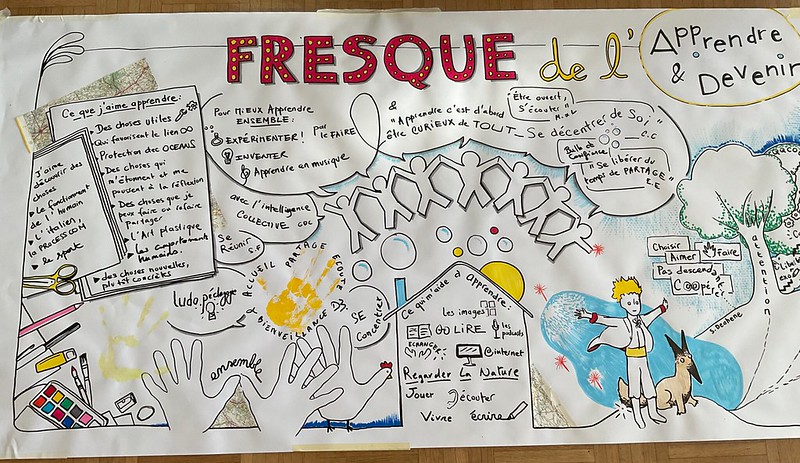 FRESQUE de l'
Apprendre
& Devenir
Ce que j'aime apprendre:
Des choses utiles
Qui favorisent le lien
Protection des OCEANS
Des choses qui
m'étonnent et me
poussent à la réflexion
Des choses que je
peux faire ou refaire
Partager
L'Art plastique
Les comportements
humains.
des choses nouvelles,
plutôt concrètes
J'aime
découvrir des
choses
Le fonctionnement
de l'humain
L'italien,
la PROCESSCOM
Le sport
Pour MiEUX Apprendre
ENSEMBLE:
EXPÉRIMENTER! par le FAIRE
INVENTER
Apprendre en musique
avec l'intelligence
COLLECTIVE CDC
Se
Réunir
S.F
&
"Apprendre c'est d'abord
être CURIEUX de TOUT
Être ouvert,
S'écouter"
Se décentrer de Soi"
Bulle de
Confiance
"Se libérer du
temps de PARTAGE"
E.E
ludo.pédagogie
ACCUEIL PARTAGE ECOUTE
BIENVEILLANCE
SE
Concentrer
ensemble
Ce qui m'aide à apprendre:
les images
LIRE
les
podcasts
ECHANGER
@internet
Regarder La Nature
Jouer
écouter
Vivre écrire
Choisir
Aimer
Faire
Pas descendre
C@@pérer
S. Desbene
attention